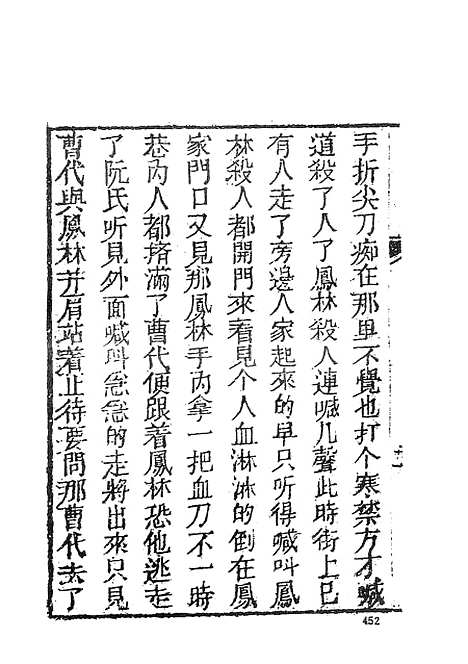 手折尖刀痴在那里不覺也打个寒禁方才喊
道殺了人了鳳林殺人連喊几聲此時街上已
有人走了旁邊人家起來的早只听得喊叫鳳
林殺人都開門來看見个人血淋淋的倒在鳳
家門口又見那鳳林手內拿一把血刀不一時
巷內人都擠滿了曹代便跟着鳳林恐他逃走
了阮氏听見外面喊叫急急的走將出來只見
曹代與鳳林并肩站着止待要問那曹代去了
452